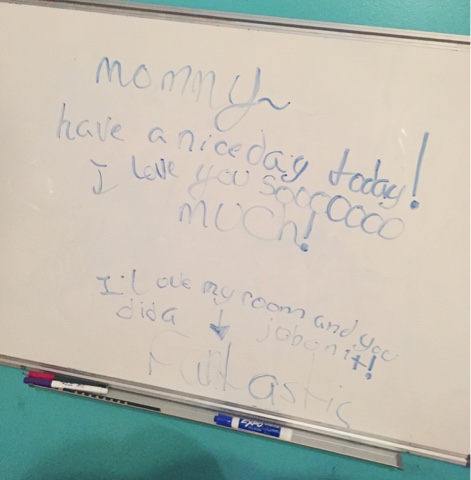 mommy
have a nice day today!
I Love you soooOOOOO
MUCH!
I Love my room and you
did a ↓ job on it!
Fantastic
EXPO